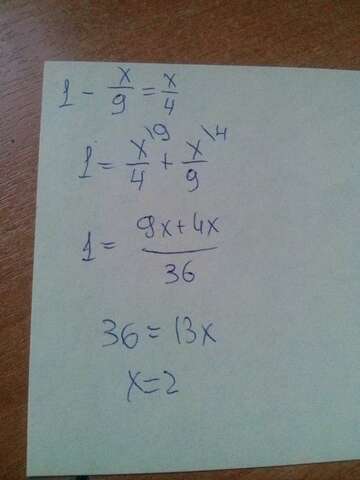 1 - x/9 = x/4
1 = x/4 \9 + x/9 \4
1 = (9x+4x)/36
36 = 13x
x=2